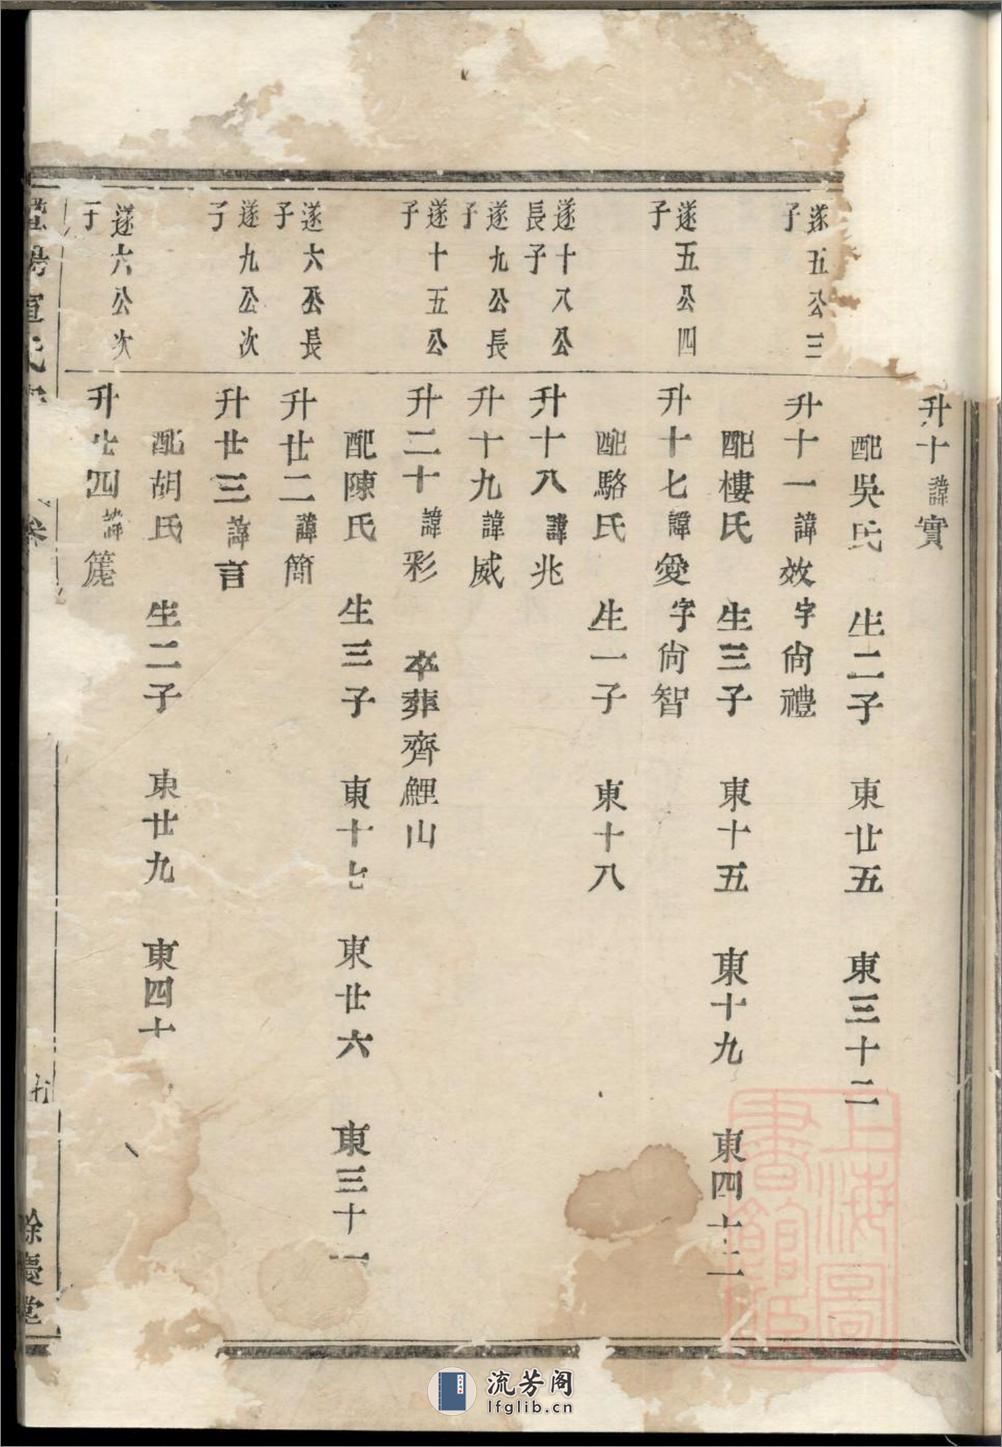 升十諱實
配吳氏 生二子 東廿五 東三十二
遂五公三子
升十一諱效字尙禮
配樓氏 生三子 東十五 東十九 東四十二
遂五公四子
升十七諱愛字尙智
配駱氏 生一子 東十八
遂十八公長子
升十八諱兆
遂九公長子
升十九諱威
遂十五公子
升二十諱彩 卒葬齊鯉山
配陳氏 生三子 東十七 東廿六 東三十一
遂六公長子
升廿二諱簡
遂九公次子
升廿三諱言
配胡氏 生二子 東廿九 東四十
遂六公次子
升廿四諱篪
氏
卷
餘慶堂
上海圖書館藏
流芳阁
lfglib.cn